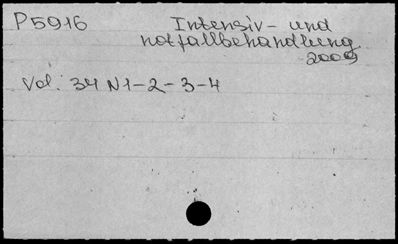 P5916 Intensiv- und
notfallbehandlung
2009
Vol: 34 N1-2-3-4